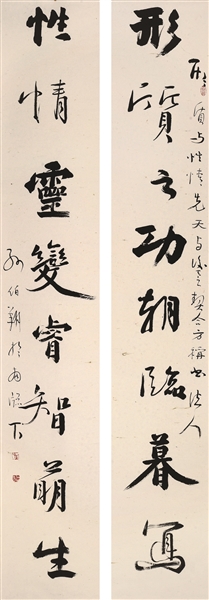 形質与性情先天与後天契合方稱書法人
形質之功朝臨暮寫
性情靈變睿智萌生
孙伯翔於下